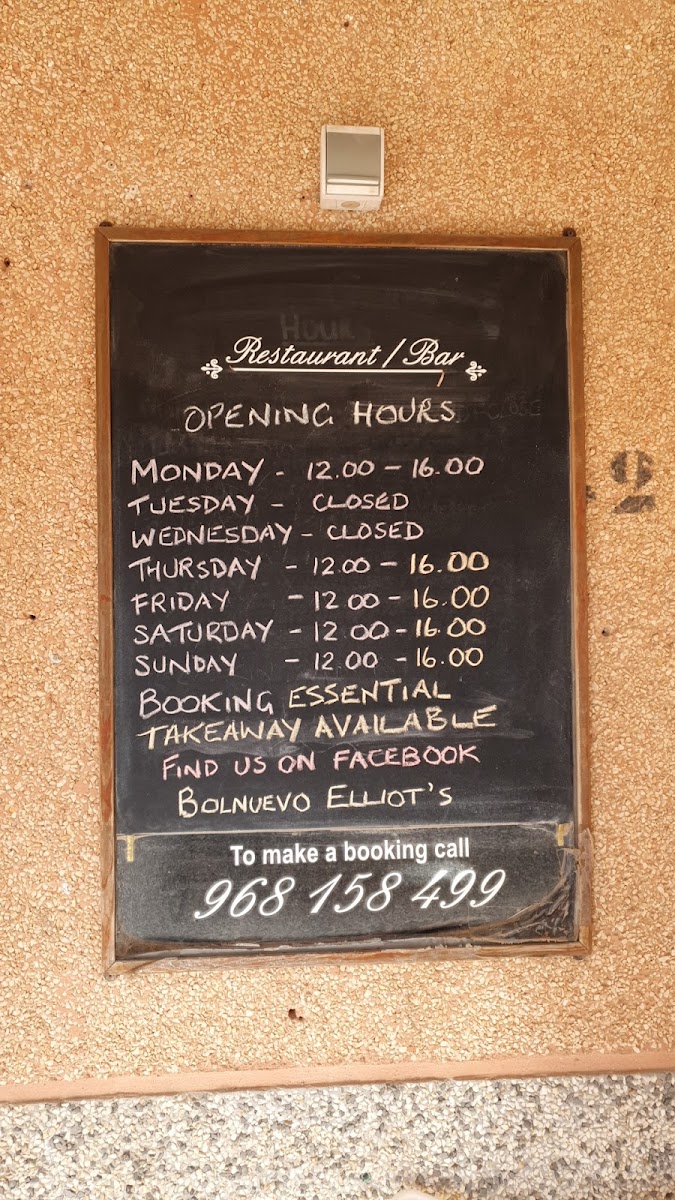 Restaurant / Bar
OPENING HOURS
MONDAY - 12.00 - 16.00
TUESDAY - CLOSED
WEDNESDAY - CLOSED
THURSDAY - 12.00 - 16.00
FRIDAY - 12 00 - 16.00
SATURDAY - 12 00 - 16.00
SUNDAY - 12.00 - 16.00
BOOKING ESSENTIAL
TAKEAWAY AVAILABLE
FIND US ON FACEBOOK
BOLNUEVO ELLIOT'S
To make a booking call
968 158 499